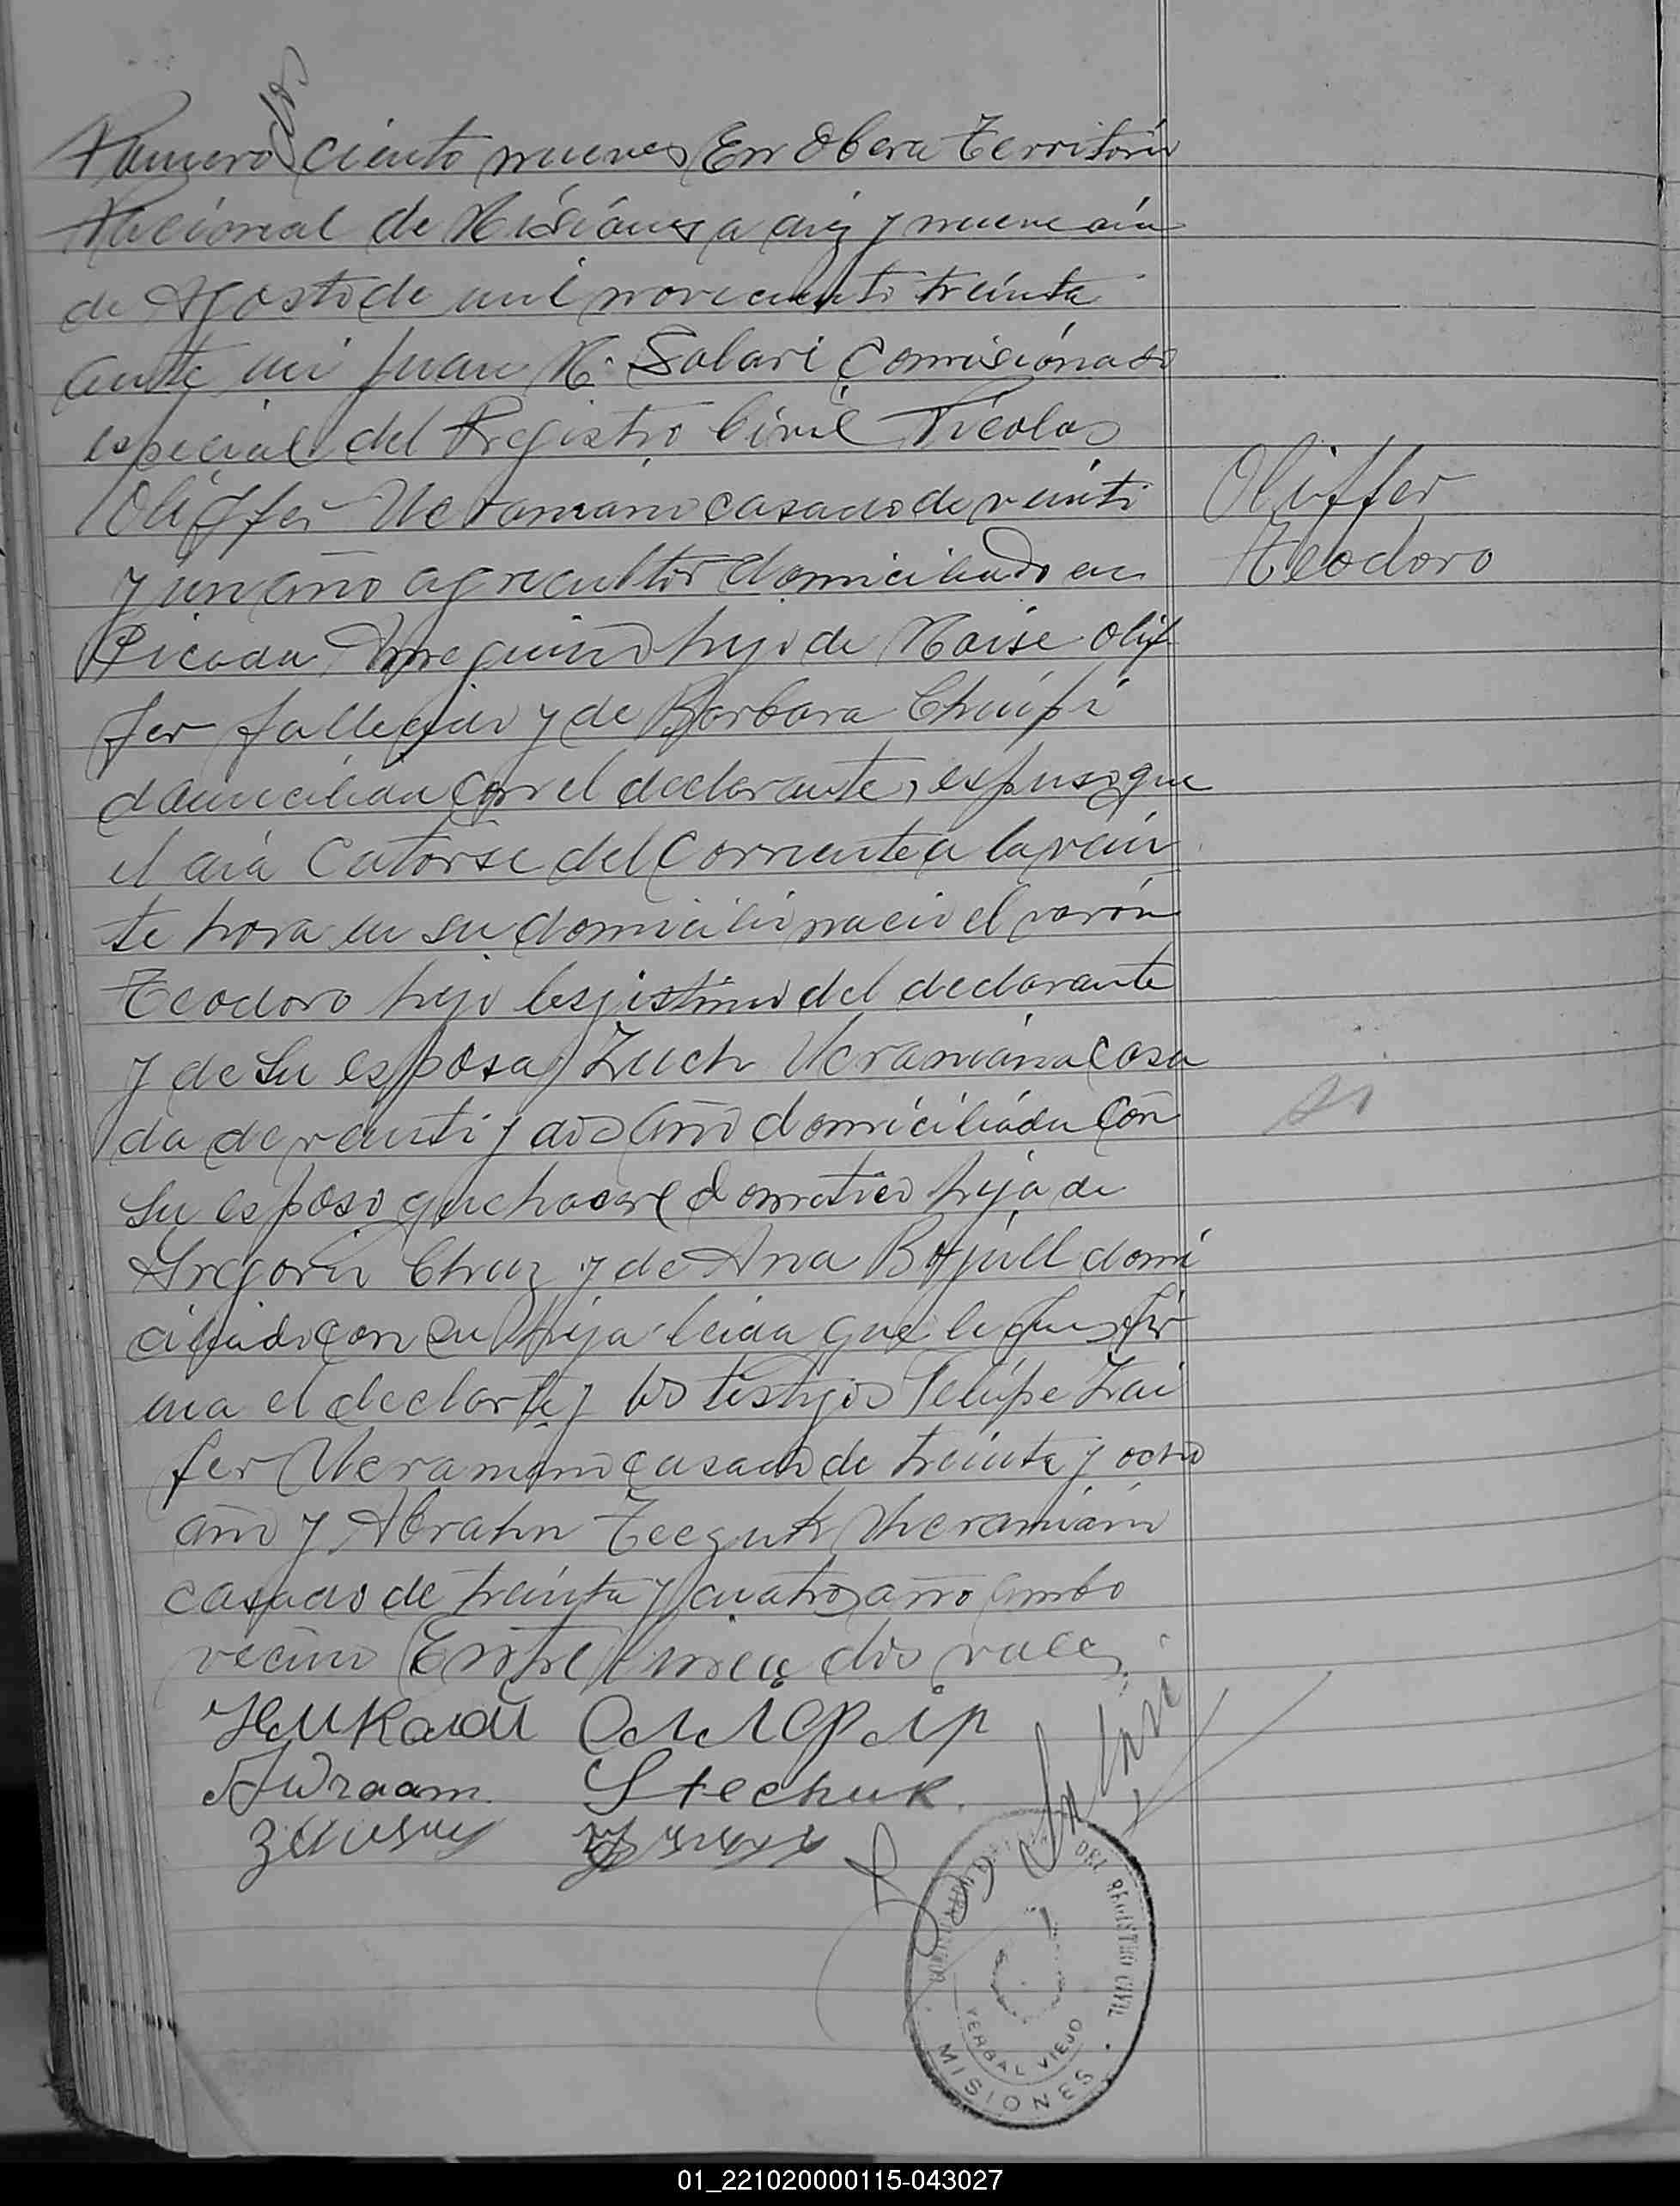 dos
Numero ciento nueve En Obera Territorio
Nacional de Misiones a diez y nueve dia
de Agosto de mil noveciento treinta
ante mi Juan M. Solari Comisionado
especial del Registro Civil Nicolas
Oliffer Ucraniano casado de veinti
y un año agricultor domiciliado en
Picada hijo de Moise Olif
fer fallecido y de Barbara
domiciliada con el declarante, espuso que
el dia Catorse del Corriente a la vein
te hora en su domicilio nacio el varón
Teodoro hijo lesjistimo del declarante
y de su esposa Zuch Ucraniana casa
da de veinti y dos año domiciliada con
su esposo quehacere domestico hija de
Gregorio y de Ana domi
ciliado con su hija leida que le fue fir
ma el declarte y los testigos Felipe Zai
fer Ucraniano casado de treinta y ocho
año y Abrahn Ucraniano
casado de treinta y cuatro año ambo
vecino Entre linea dos vale
Олефір
Awraam Stechuk
Oliffer
Teodoro
DEL REGISTRO CIVIL
YERBAL VIEJO
MISIONES
01_221020000115-043027